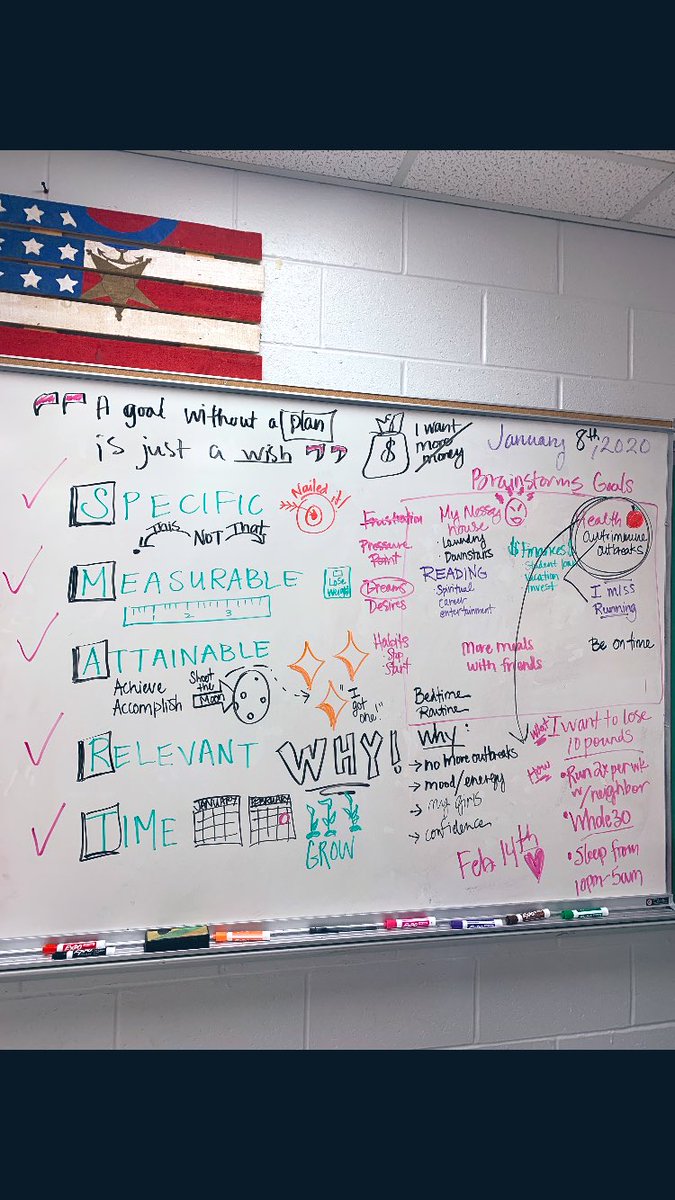 " A goal without a plan
is just a wish "
$
I want
more
money
January 8th, 2020
SPECIFIC
Nailed it!
This NOT That
MEASURABLE
1 2 3
Lose
Weight
ATTAINABLE
Achieve
Accomplish
Shoot
the
Moon
"I
got
one!"
RELEVANT
WHY!
TIME
JANUARY
FEBRUARY
GROW
Brainstorms Goals
Frustration
Pressure
Point
Dreams
Desires
Habits
Stop
Start
My Messy
House
· Laundry
· Downstairs
READING
· Spiritual
career
entertainment
$ Finances
Student loan
Vacation
Invest
Health
autoimmune
outbreaks
I miss
Running
More meals
with friends
Be on time
Bedtime
Routine
Why:
→ no more outbreaks
→ mood/energy
→ my girls
→ confidence
Feb 14th
What
I want to lose
10 pounds
How
• Run 2x per wk
w/neighbor
• Whole30
• Sleep from
10pm-5am
Expo